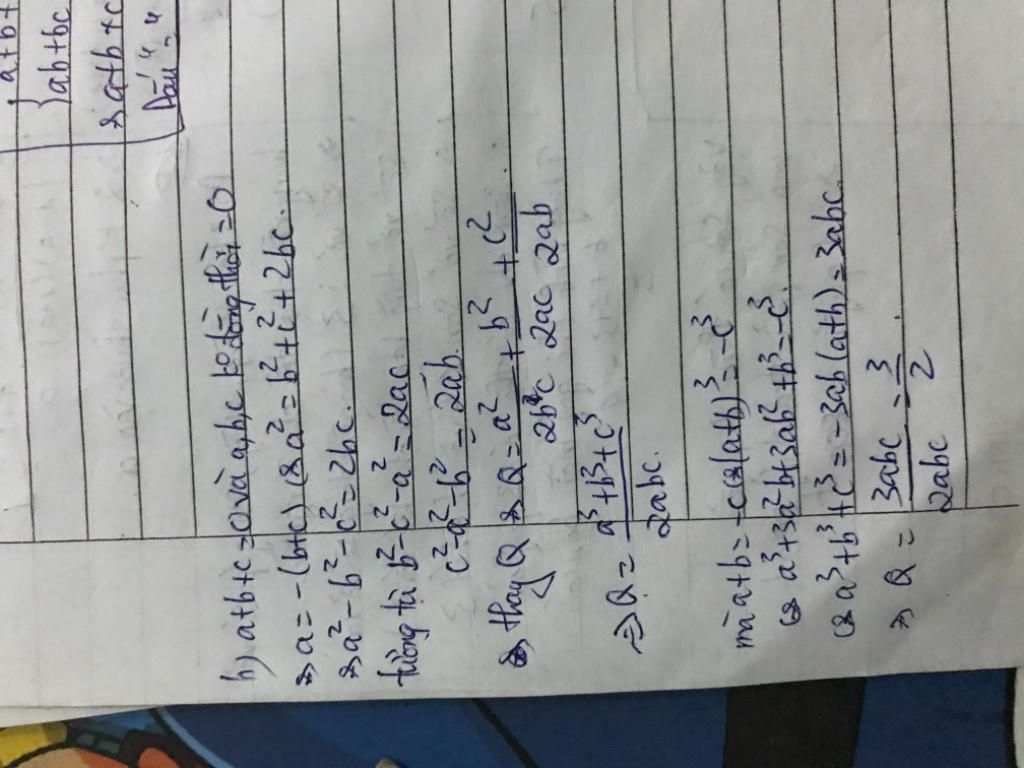 a+b+
ab+bc
⇒ a+b+c
Dấu "="
b) a+b+c=0 và a,b,c ko đồng thời =0
⇒ a = -(b+c) ⇔ a² = b²+c²+2bc.
⇒ a²-b²-c² = 2bc.
tương tự b²-c²-a² = 2ac
c²-a²-b² = 2ab.
⇒ thay Q ⇒ Q = a²/2bc + b²/2ac + c²/2ab.
⇒ Q = a³+b³+c³/2abc.
mà a+b = -c ⇔ (a+b)³ = -c³
⇔ a³+3a²b+3ab²+b³ = -c³.
⇔ a³+b³+c³ = -3ab(a+b) = 3abc.
⇒ Q = 3abc/2abc = 3/2.